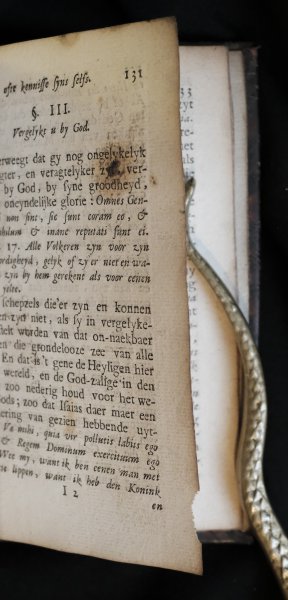 ofte kennisse syns selfs. 131
§. III.
Vergelyke u by God.
erweegt dat gy nog ongelykelyk
gter, en veragtelyker zyt ver-
by God, by syne groodheyd,
oneyndelijke glorie: Omnes Gen-
non sint, sic sunt coram eo, &
bilum & inane reputati sunt ei.
17. Alle Volkeren zyn voor zyn
ordigheyd, gelyk of zy'er niet en wa-
zyn by hem gerekent als voor eenen
yelte.
schepzels die'er zyn en konnen
en zyn niet, als sy in vergelyke-
stelt worden van dat on-naekbaer
en die grondelooze zee van alle
En dat is't gene de Heyligen hier
weteld, en de God-zalige in den
zoo nederig houd voor het we-
ods; zoo dat Isaias daer maet een
ering van gezien hebbende uyt-
Væ mihi, quia vir pollutis labiis ego
& Regem Dominum exercituum ego
Wee my, want ik ben eenen man met
ne lippen, want ik heb den Konink
I 2 en
33
zyt